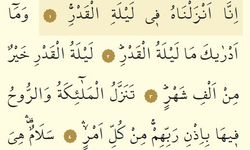 اِنَّٓا اَنْزَلْنَاهُ ف۪ي لَيْلَةِ الْقَدْرِۚ ﴿١﴾ وَمَٓا
اَدْرٰيكَ مَا لَيْلَةُ الْقَدْرِۜ ﴿٢﴾ لَيْلَةُ الْقَدْرِ خَيْرٌ
مِنْ اَلْفِ شَهْرٍۜ ﴿٣﴾ تَنَزَّلُ الْمَلٰٓئِكَةُ وَالرُّوحُ
ف۪يهَا بِاِذْنِ رَبِّهِمْۚ مِنْ كُلِّ اَمْرٍۙ ﴿٤﴾ سَلَامٌ۠ هِيَ